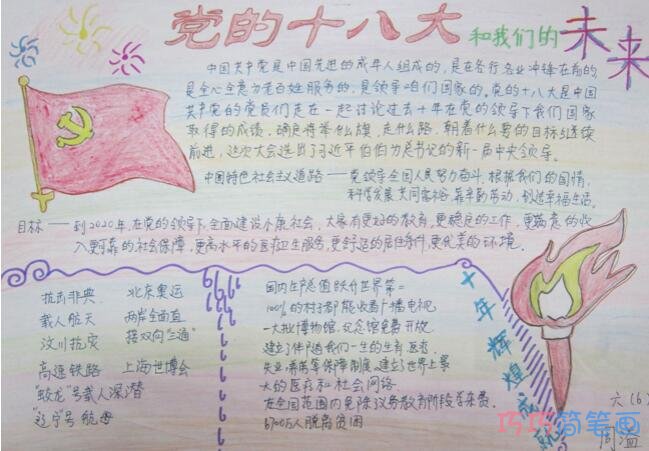 党的十八大和我们的未来
中国共产党是中国先进的成年人组成的,是在各行各业冲锋在前的,
是全心全意为老百姓服务的,是领导咱们国家的。党的十八大是中国
共产党的党员们走在一起讨论过去十年在党的领导下我们国家
取得的成绩,确定将举什么旗,走什么路,朝着什么要的目标继续
前进,这次大会选出了习近平伯伯为总书记的新一届中央领导。
中国特色社会主义道路——党领导全国人民努力奋斗,根据我们的国情,
科学发展,共同富裕,靠辛勤劳动,创造幸福生活。
目标——到2020年,在党的领导下,全面建设小康社会,大家有更好的教育,更稳定的工作,更满意的收
入更可靠的社会保障,更高水平的医疗卫生服务,更舒适的居住条件,更优美的环境。
抗击非典 北京奥运
载人航天 两岸全面直
汶川抗灾 接双向"三通"
高速铁路 上海世博会
"蛟龙"号载人深潜
"辽宁"号航母
国内生产总值跃升世界第二
100%的村子都能收看广播电视
一大批博物馆、纪念馆免费开放
建立了伴随我们一生的生育
失业 保障制度,建立了世界上最
大的医疗和社会网络.
在全国范围内免除义务教育阶段学杂费.
万人脱离贫困
十年辉煌成就
六(6)
周溢
巧巧简笔画